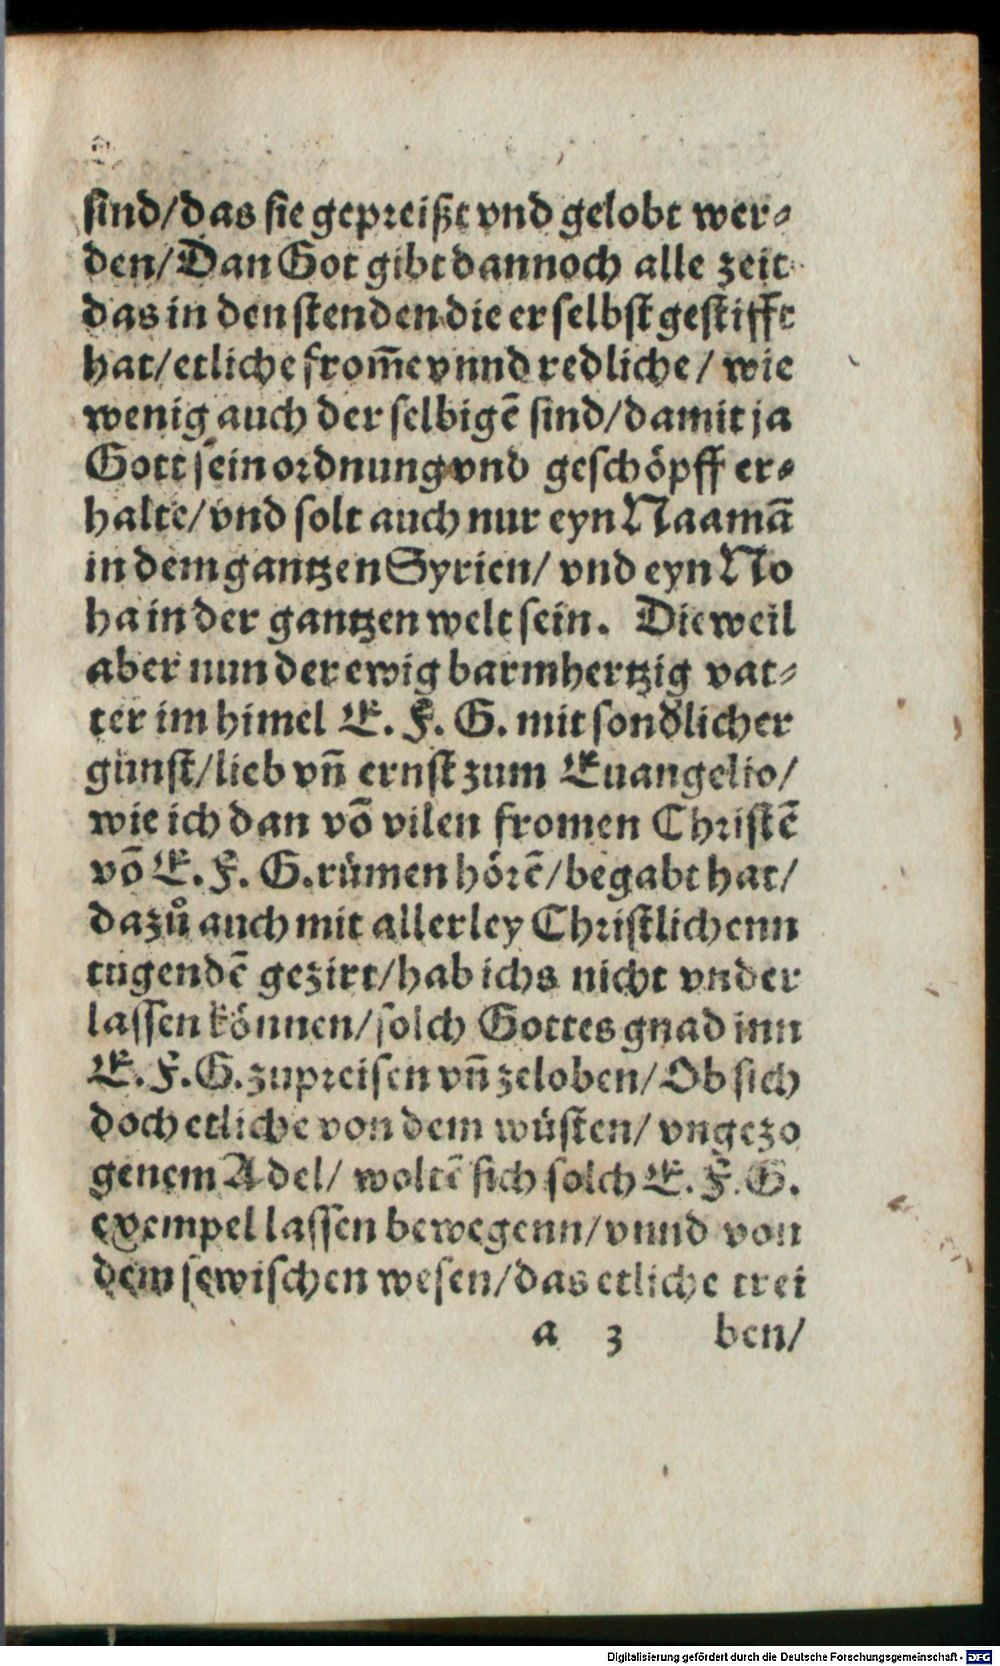 sind/das sie gepreißt vnd gelobt wer⸗
den/Dan Got gibt dannoch alle zeit
das in den stenden die er selbst gestifft
hat/etliche from̃e vnnd redliche/ wie
wenig auch der selbigẽ sind/damit ja
Gott sein ordnung vnd geschöpff er⸗
halte/vnd solt auch nur eyn Naamã
in dem gantzen Syrien/ vnd eyn No
ha in der gantzen welt sein. Die weil
aber nun der ewig barmhertzig vat⸗
ter im himel E. F. G. mit sonđlicher
gunst/lieb vñ ernst zum Euangelio/
wie ich dan võ vilen fromen Christẽ
võ E. F. G. rümen hörẽ/begabt hat/
dazů auch mit allerley Christlichenn
tugendẽ gezirt/hab ichs nicht vnder
lassen können/solch Gottes gnad inn
E. F. G. zupreisen vñ zeloben/Ob sich
doch etliche von dem wüsten/ vngezo
genem Adel/ woltẽ sich solch E. F. G.
exempel lassen bewegenn/vnnd von
dem sewischen wesen/das etliche trei
a 3 ben/
Digitalisierung gefördert durch die Deutsche Forschungsgemeinschaft - DFG